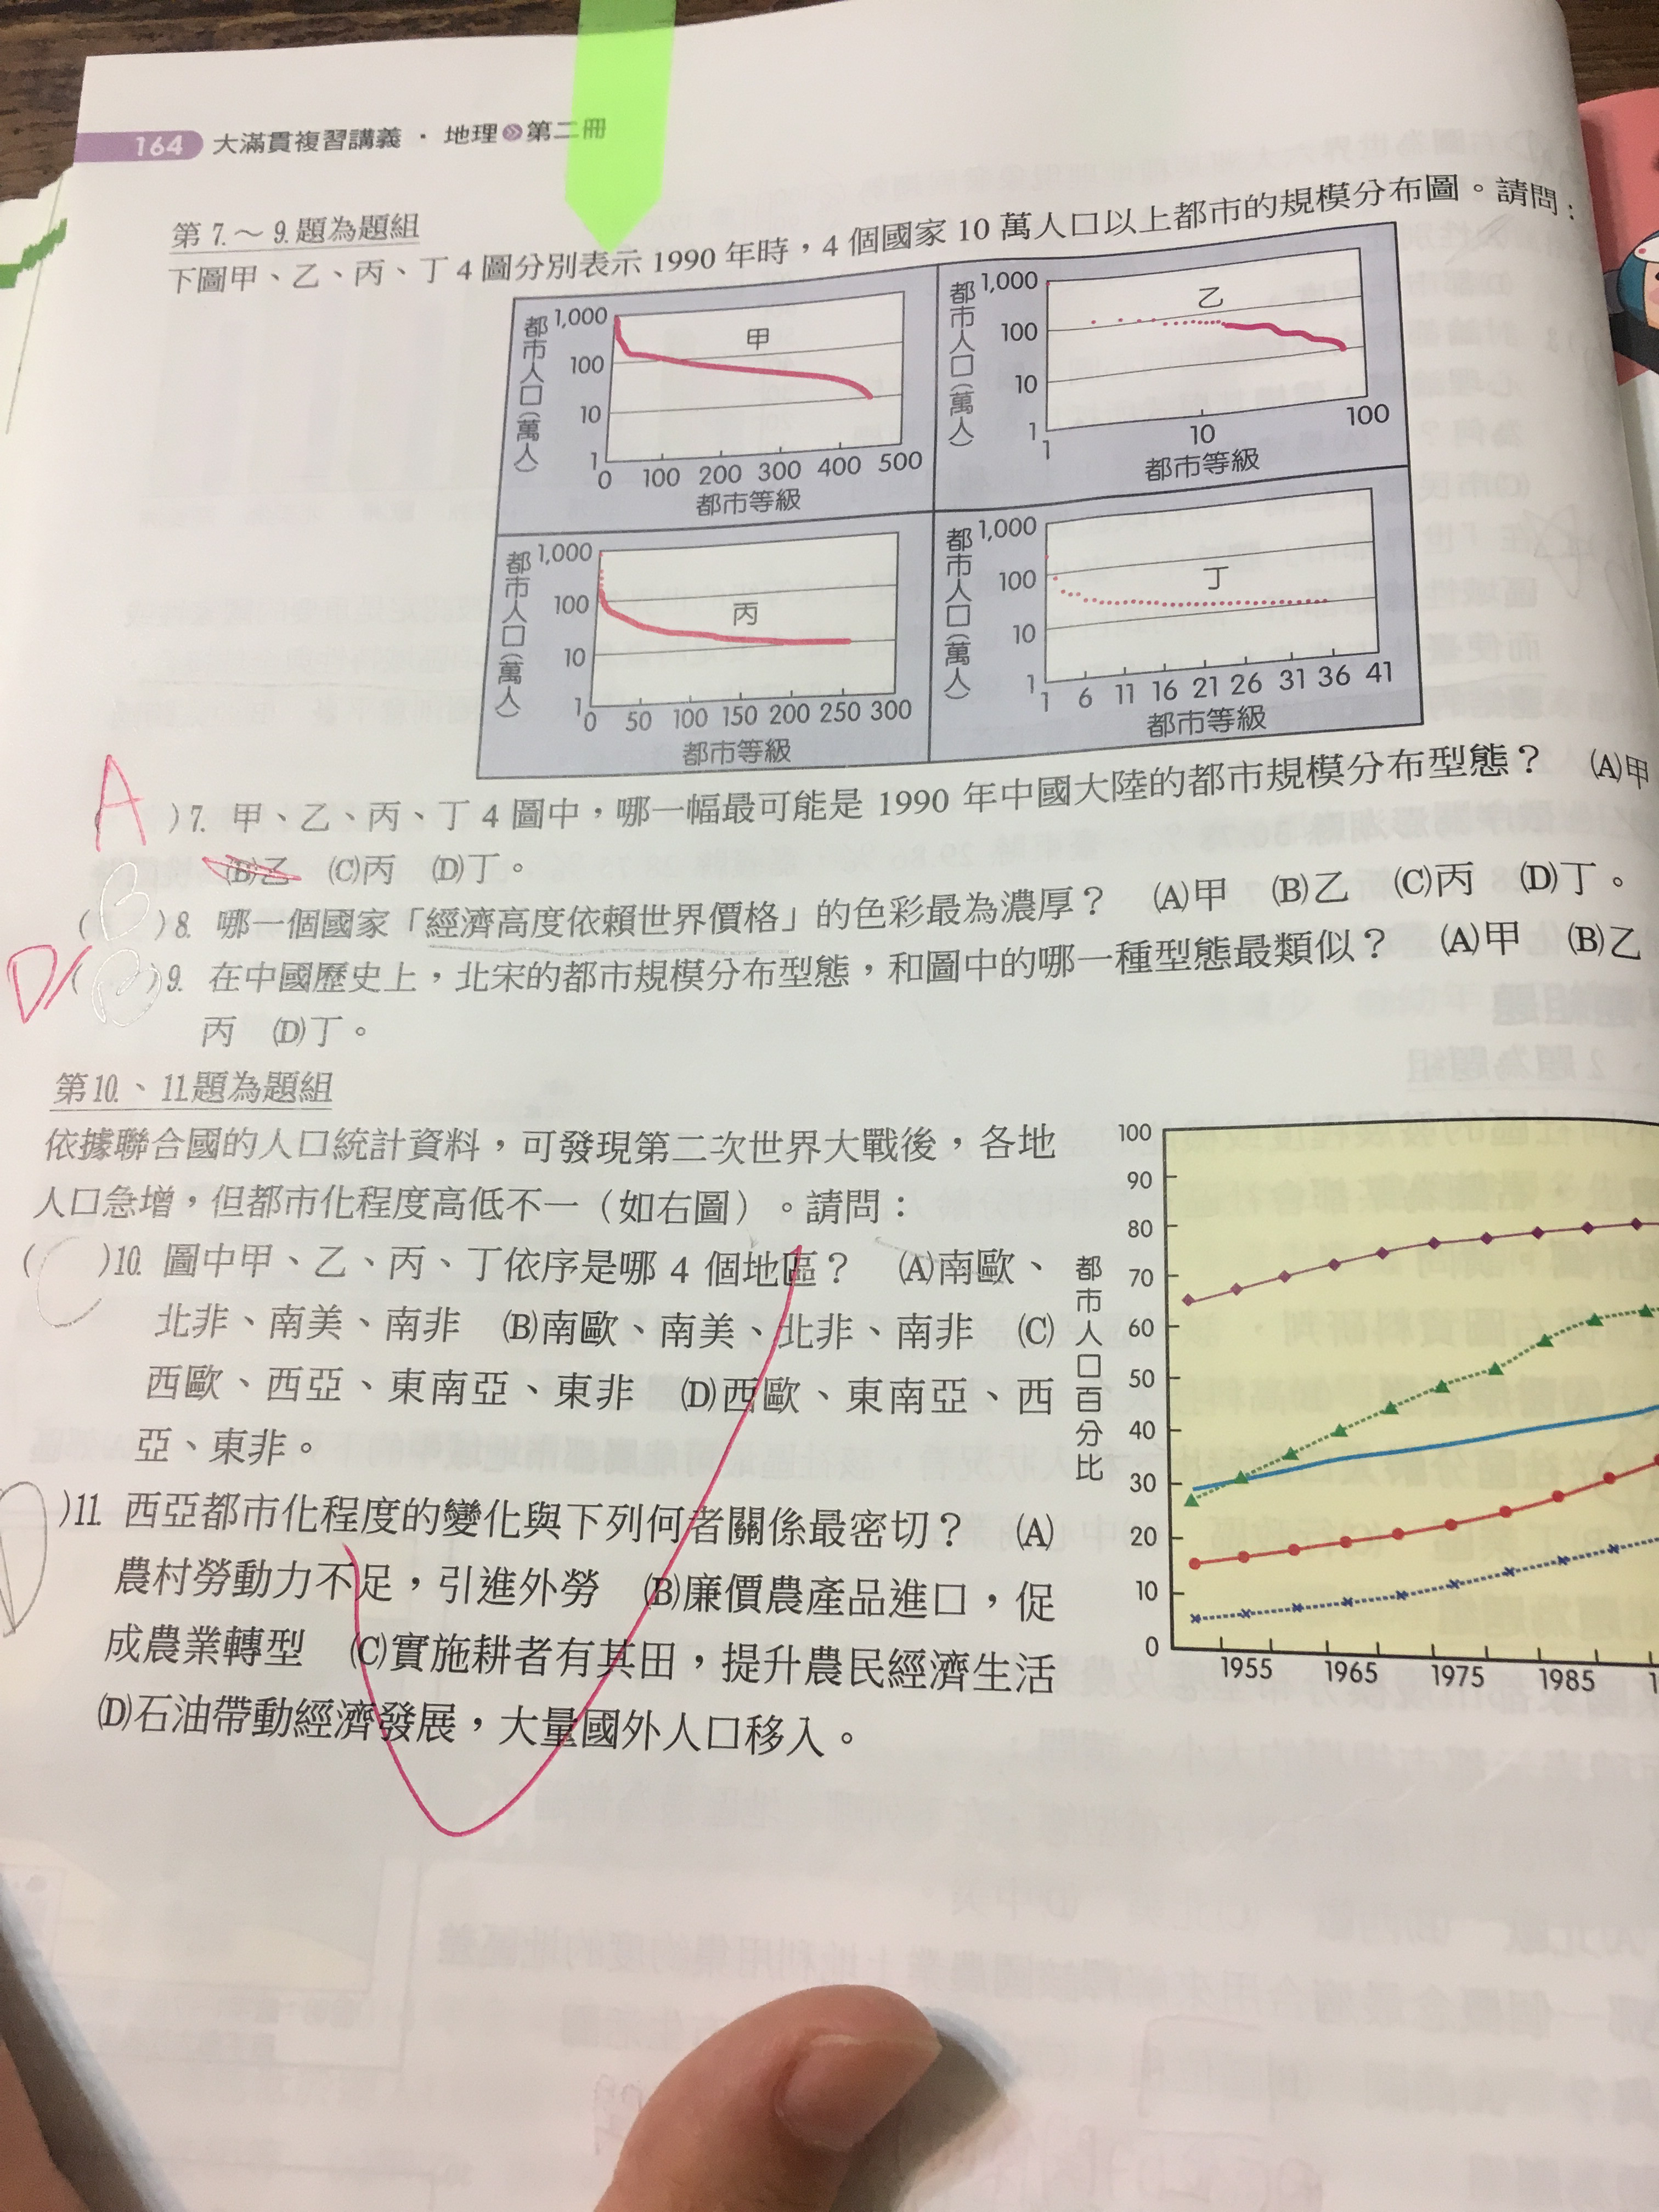 164 大滿貫複習講義・地理 第二冊
第7.～9.題為題組
下圖甲、乙、丙、丁4圖分別表示1990年時，4個國家10萬人口以上都市的規模分布圖。請問：
都市人口(萬人)
1,000
100
10
1
甲
0 100 200 300 400 500
都市等級
都市人口(萬人)
1,000
100
10
1
乙
1 10 100
都市等級
都市人口(萬人)
1,000
100
10
1
丙
0 50 100 150 200 250 300
都市等級
都市人口(萬人)
1,000
100
10
1
丁
1 6 11 16 21 26 31 36 41
都市等級
A
)7. 甲、乙、丙、丁4圖中，哪一幅最可能是1990年中國大陸的都市規模分布型態？ (A)甲
(B)乙 (C)丙 (D)丁。
( B )8. 哪一個國家「經濟高度依賴世界價格」的色彩最為濃厚？ (A)甲 (B)乙 (C)丙 (D)丁。
D/( B )9. 在中國歷史上，北宋的都市規模分布型態，和圖中的哪一種型態最類似？ (A)甲 (B)乙
丙 (D)丁。
第10.、11.題為題組
依據聯合國的人口統計資料，可發現第二次世界大戰後，各地
人口急增，但都市化程度高低不一（如右圖）。請問：
( C )10. 圖中甲、乙、丙、丁依序是哪4個地區？ (A)南歐、
北非、南美、南非 (B)南歐、南美、北非、南非 (C)
西歐、西亞、東南亞、東非 (D)西歐、東南亞、西
亞、東非。
D )11. 西亞都市化程度的變化與下列何者關係最密切？ (A)
農村勞動力不足，引進外勞 (B)廉價農產品進口，促
成農業轉型 (C)實施耕者有其田，提升農民經濟生活
(D)石油帶動經濟發展，大量國外人口移入。
都市人口百分比
100
90
80
70
60
50
40
30
20
10
0
1955 1965 1975 1985